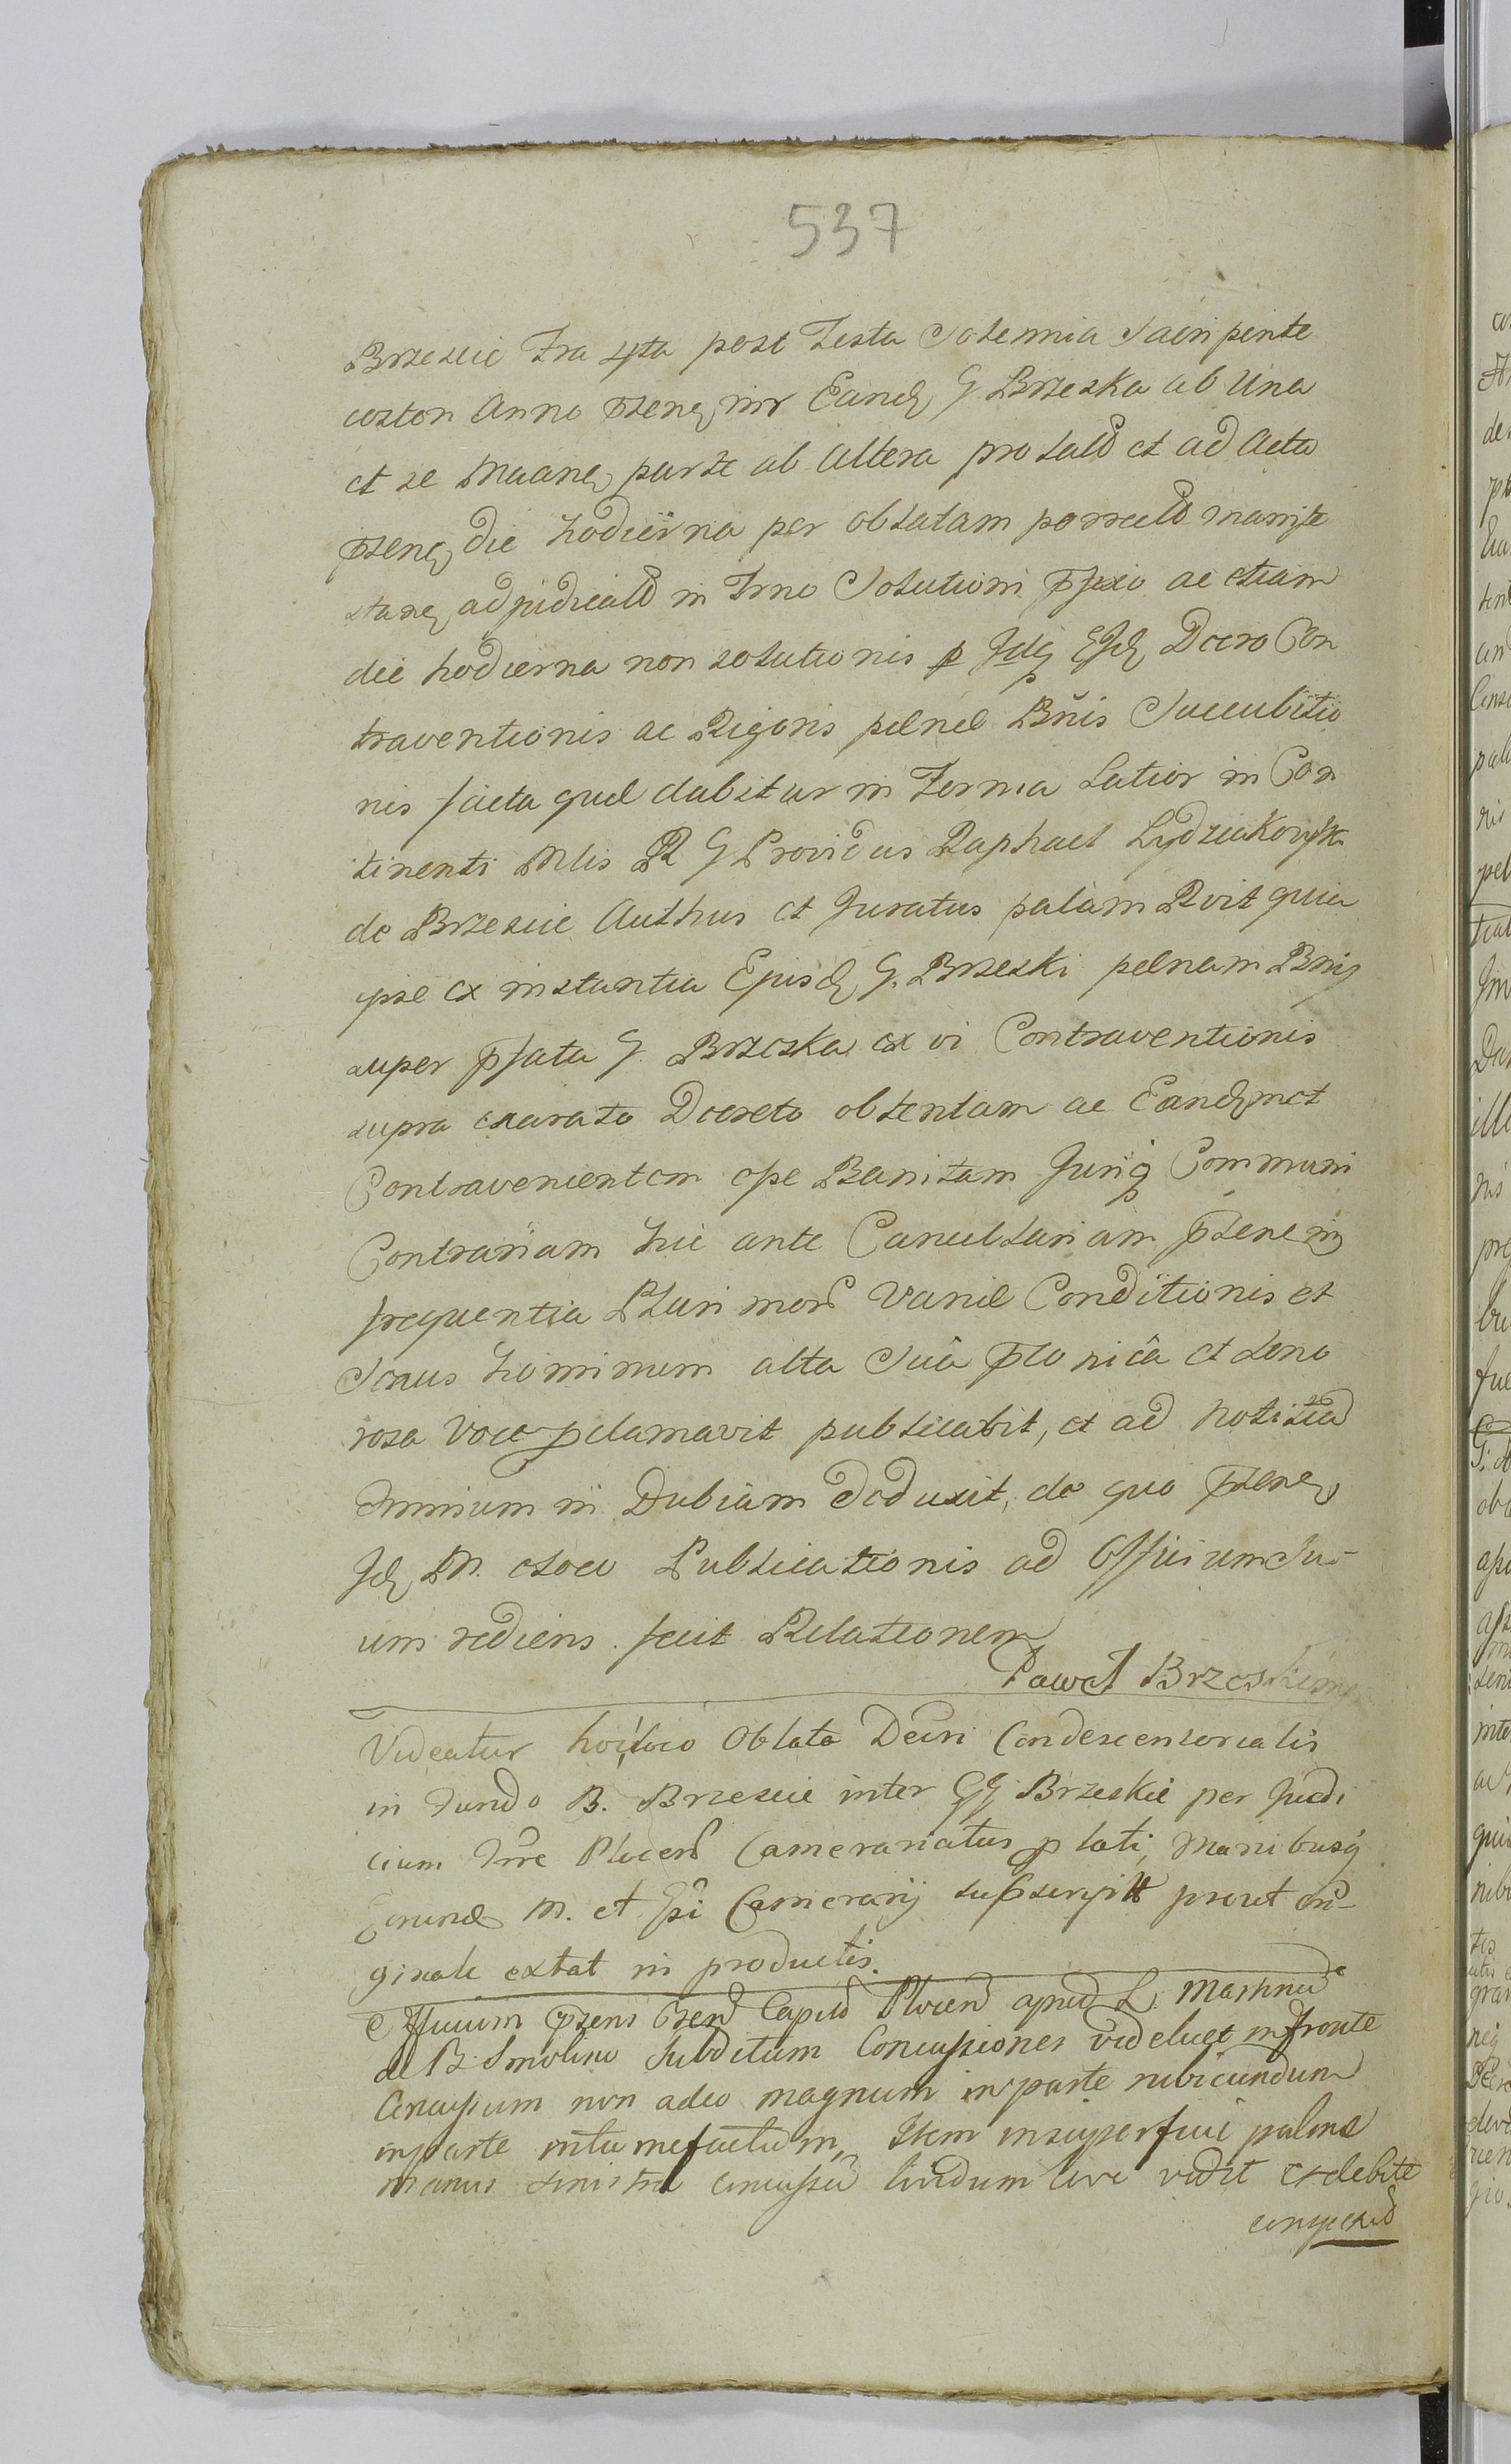 537
Brzescie Fra 4ta post Festa Solennia Sacri pente
coston Anno pseneq inr Eandq G Brzeska ab Una
et se Maaneq parte ab altera prolald et ad Acta
pseneq die hodierna per oblatam porrectd manife
staneq adjudicald in Trno Solutioni pfixo ac etiam
die hodierna non solutionis p Decro Con
traventionis ac Rigoris pelnel Bnis Succubitio
nis facta quel dabitur in Forma Latior in Con
tinenti Mlis R G Providus Raphael Lydziakowsk
de Brzescie Authus et Juratus palam Rvit quia
ipse ex instantia Ejusdq G. Brzeski pelnam Bnis
super pfata G. Brzeska ex vi Contraventionis
supra exarato Decreto obtentam ac Eandqmet
Contravenientem ope Banitam Juriq Communi
Contrariam hic ante Cancellariam psenem
frequentia Plurimor Variel Conditionis et
Sexus hominum alta Suâ ptonicâ et sono
rosa Voce pclamavit publicabit, et ad notitiad
Omnium in Dubiam deduxit, de quo pseneq
Jdq M. eloco Publicationis ad Officium Su-
um rediens fecit Relationem
Paweł Brzeski mp
Videatur hoc loco Oblata Decri Condescensorialis
in Fundo B. Brzescie inter GG Brzeskie per Judi
cium Trre Plocen Camerariatus plati, Manibusq
Eorund M. et Gsi Camerarij subscript prout ori-
ginale extat in productis.
Officium psens Gen Capit Plocen apud L. Martinu
de B. Smolino Subditum Concussiones videlicet in fronte
Concussum non adeo magnum in parte rubicundum
in parte intumefactum, Item in superficie palmæ
manus sinistræ concussu lividum leve vidit et debite
conspexit